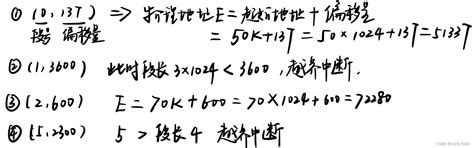 ① (0, 137) ⇒ 物理地址E = 起始地址 + 偏移量
段号 偏移量 = 50K + 137 = 50 × 1024 + 137 = 51337
② (1, 3600) 此时段长 3×1024 < 3600, 越界中断.
③ (2, 600) E = 70K + 600 = 70 × 1024 + 600 = 72280
④ (5, 2300) 5 > 段长 4 越界中断